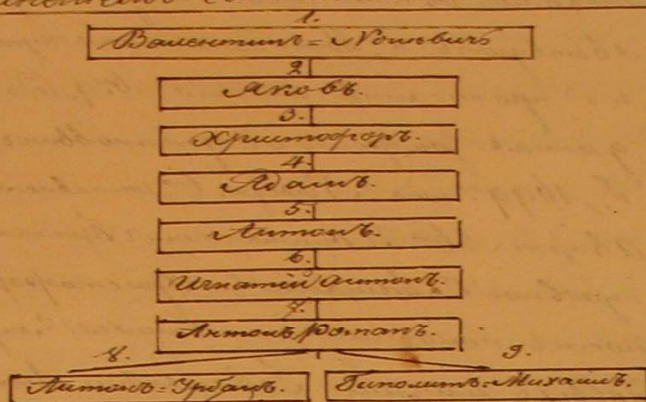 1.
Валентинъ=
2
Яковъ.
3.
Христофоръ.
4.
Адамъ.
5.
Антонъ.
6.
Игнатій Антонъ.
7.
Антонъ Романъ.
8. 9.
Антонъ=Урбанъ. Гиполитъ=Михаилъ.